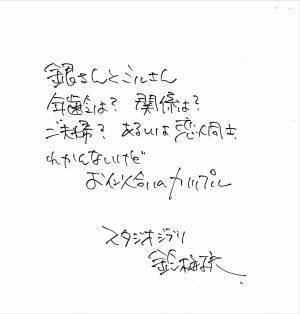 銀さんとミルさん
年齢は？ 関係は？
ご夫婦？ あるいは恋人同士
わかんないけど
お似合いのカップル
スタジオジブリ
鈴木敏夫